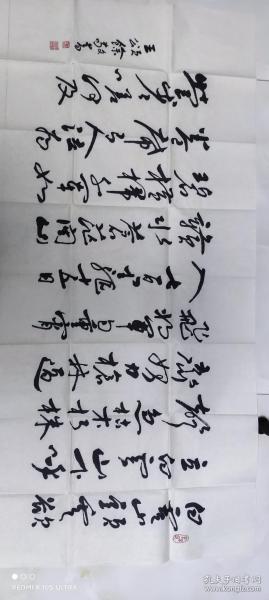 白云山头云欲
立白云山下呼
声急枯木朽株
齐努力枪林逼
飞将军自重霄
入七百里驱十五日
赣水苍茫闽山
碧横扫千军如
卷席有人泣为
营步步嗟何及
REDMI K30S ULTRA
孔夫子旧书网